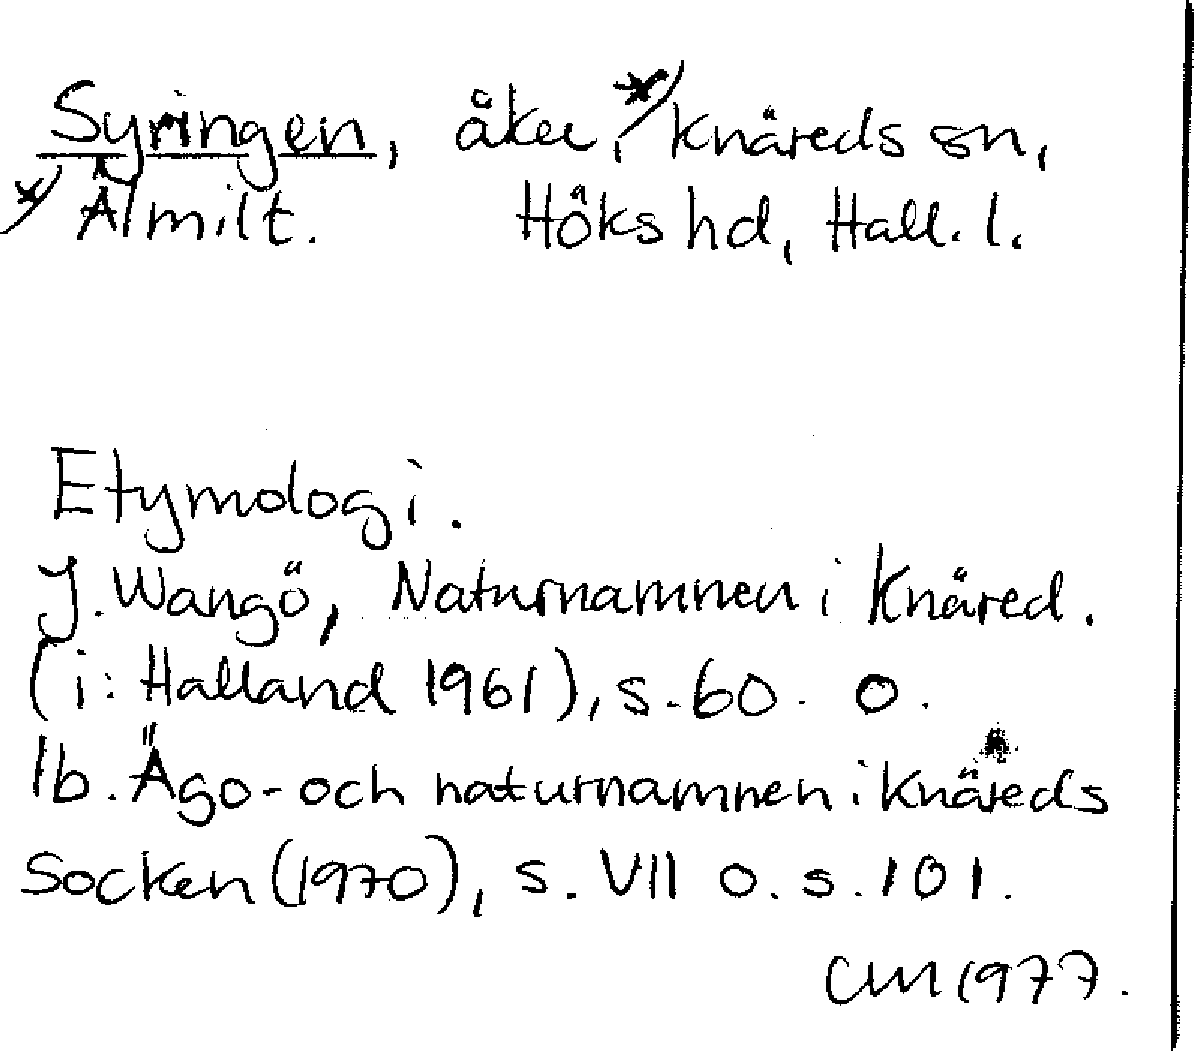 Syringen, åker, *) Knäreds sn,
*) Älmilt. Höks hd, Hall. l.
Etymologi.
J. Wangö, Naturnamnen i Knäred.
(i: Halland 1961), s. 60. o.
Ib. Ägo- och naturnamnen i Knäreds
Socken (1970), s. VII o. s. 101.
CM 1977.